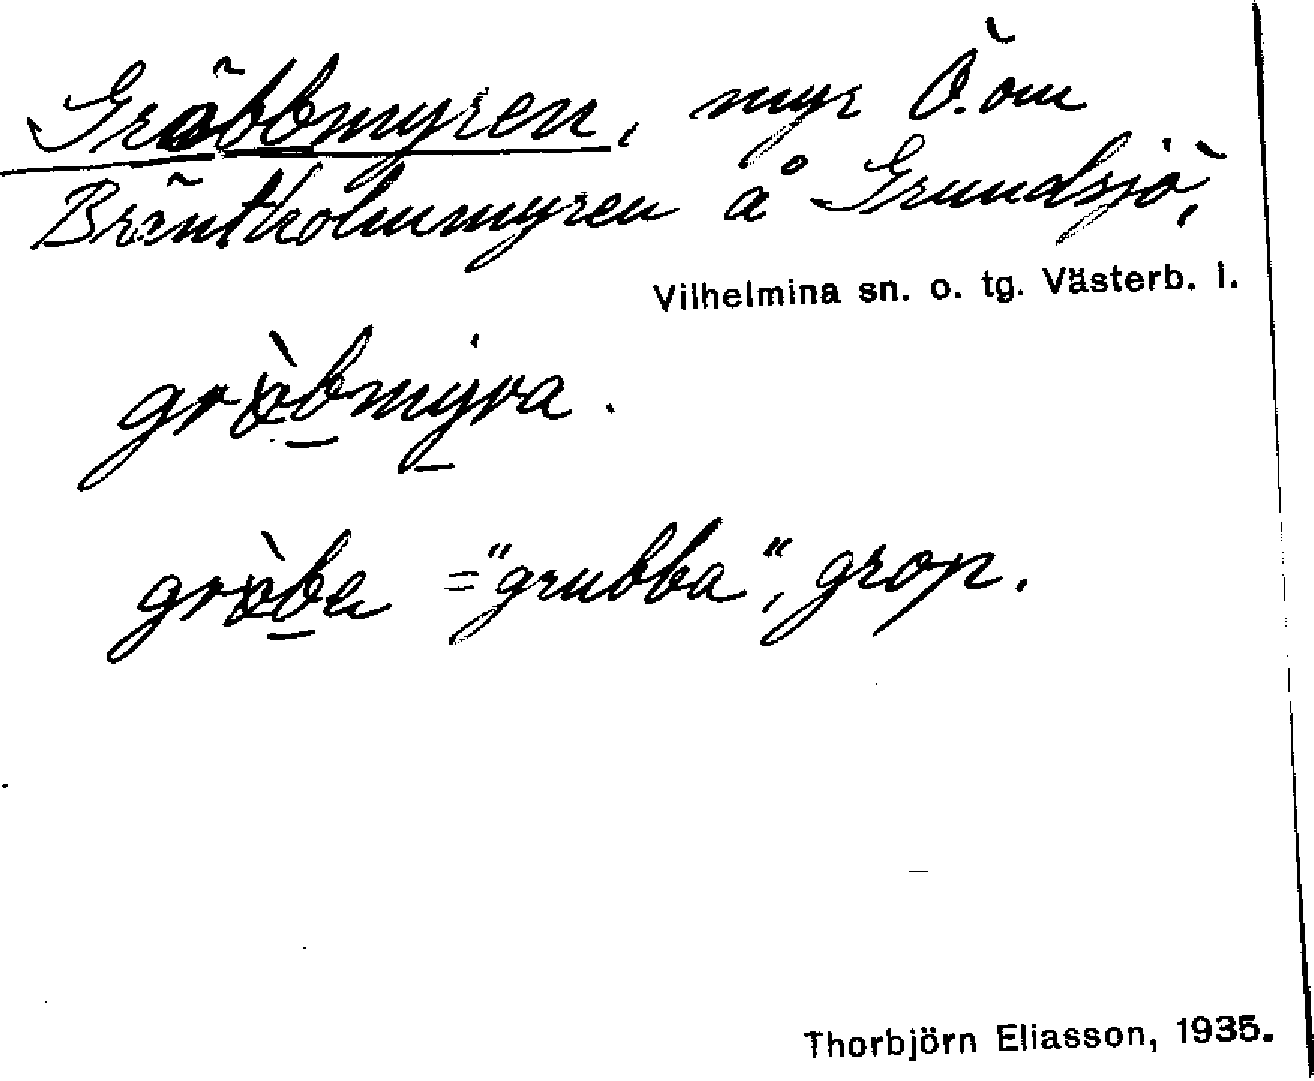 Gräbbmyren, myr Ö. om
Bräntholmmyren å Grundsjö,
Vilhelmina sn. o. tg. Västerb. l.
="grubba", grop.
Thorbjörn Eliasson, 1935.